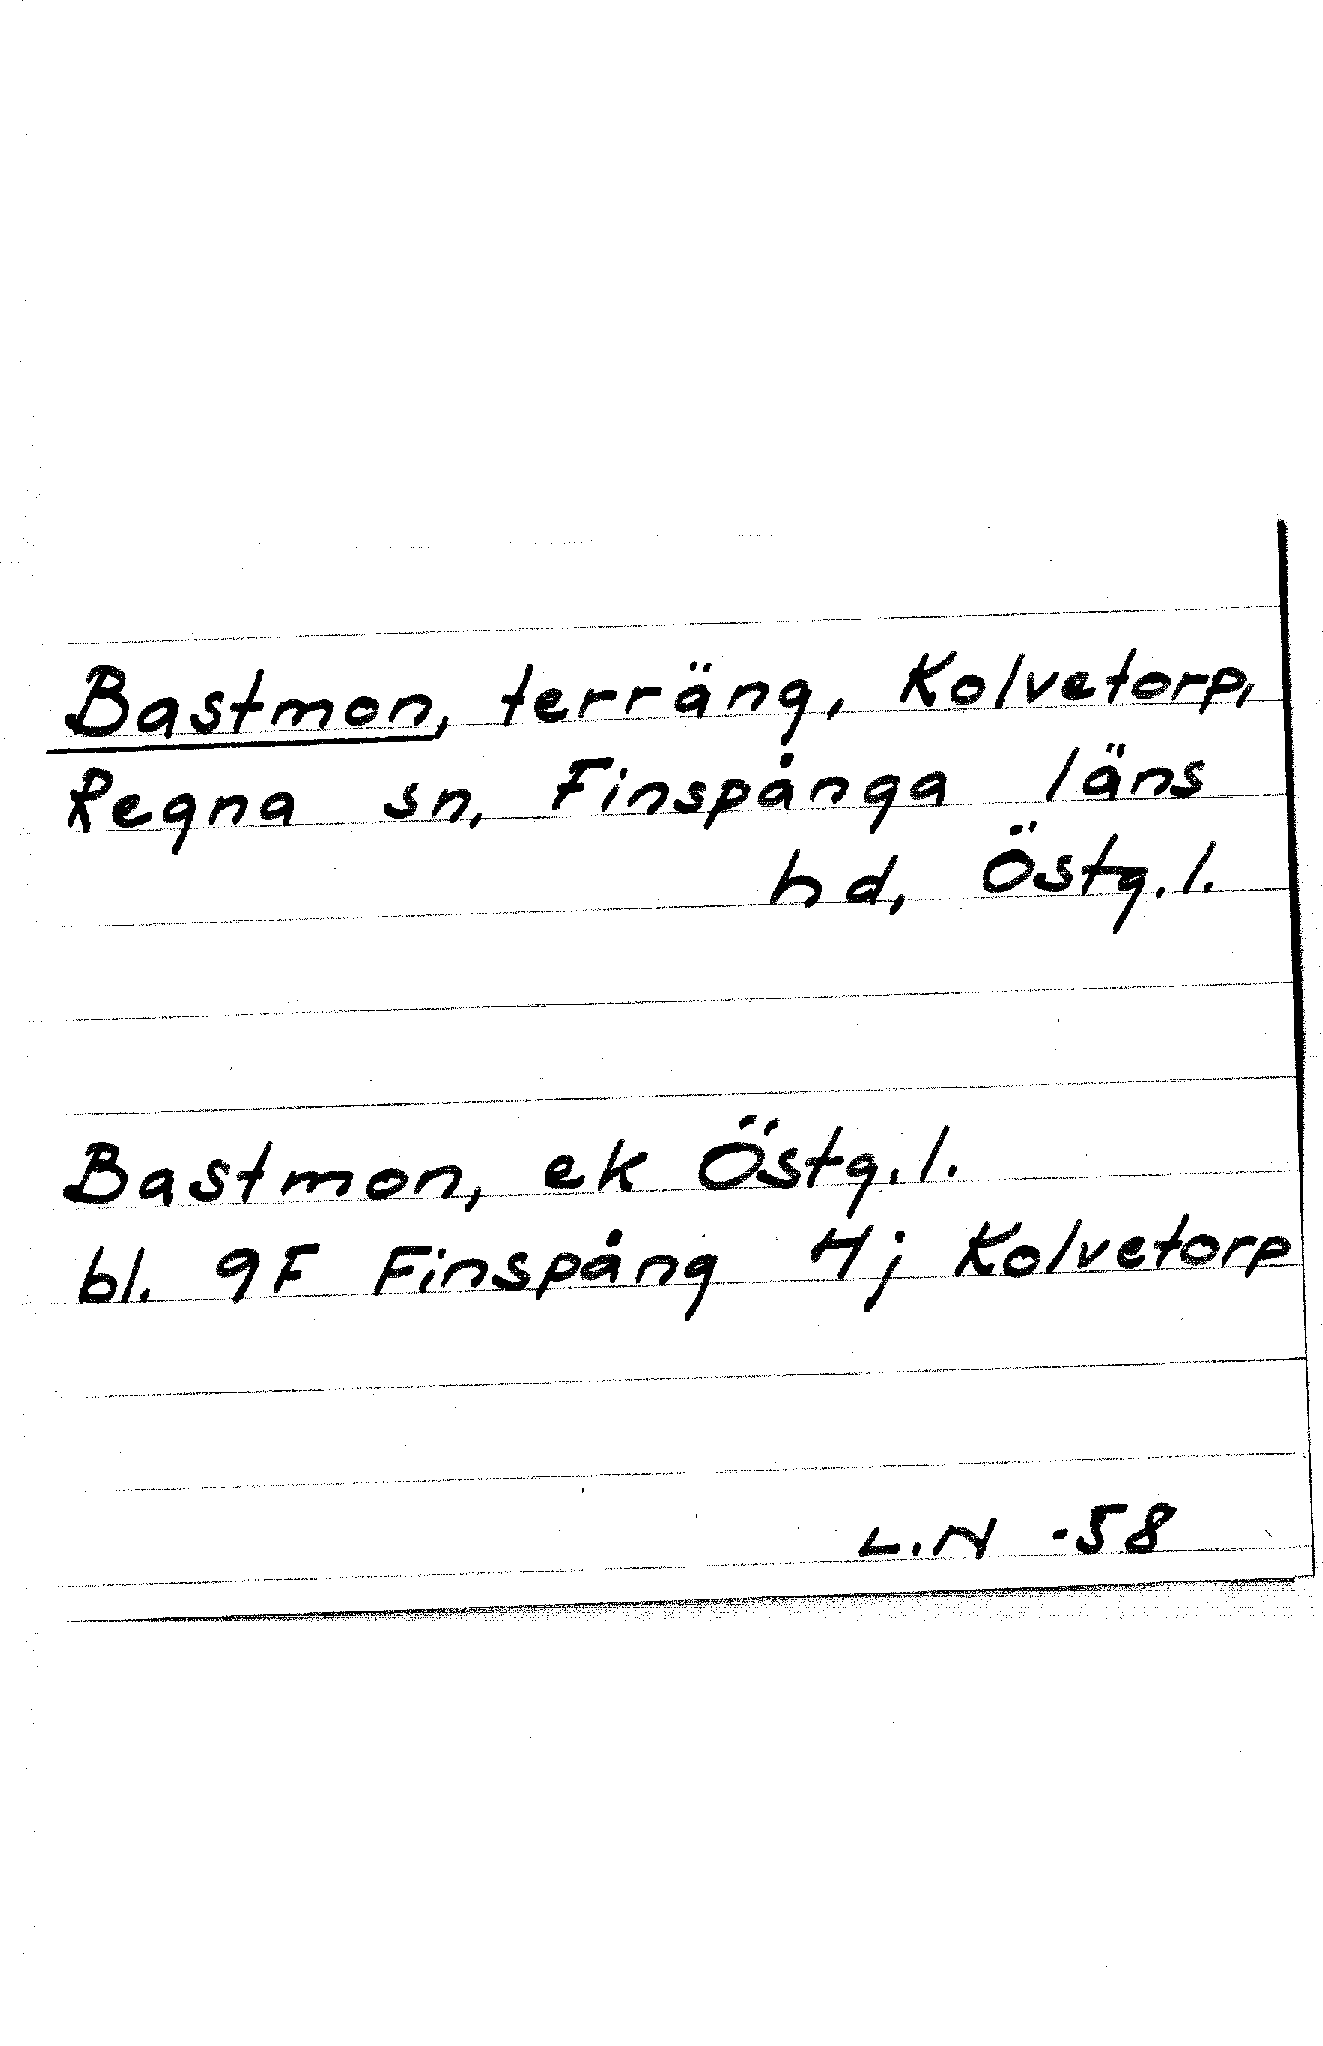 Bastmon, terräng, Kolvetorp,
Regna sn, Finspånga läns
hd, Östg.l.
Bastmon, ek Östg.l.
bl. 9F Finspång 4j Kolvetorp
L.N -58